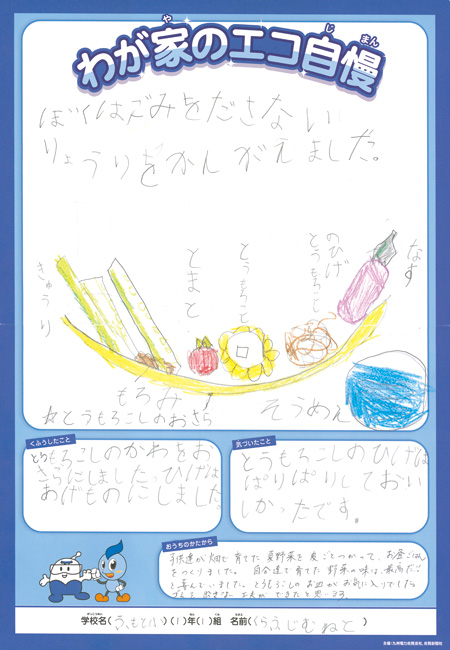 わが家のエコ自慢
や
じまん
ぼくはごみをださない
りょうりをかんがえました。
きゅうり
とまと
とうもろこし
とうもろこし
のひげ
なす
もろみ
☆とうもろこしのおさら
そうめん
くふうしたこと
とうもろこしのかわをお
さらにしました。ひげは
あげものにしました。
気づいたこと
とうもろこしのひげは
ぱりぱりしておい
しかったです。
おうちのかたから
子供達が畑で育てた夏野菜を皮ごとつかって、お昼ごはん
をつくりました。自分達で育てた野菜の味は、最高だ
と喜んでいました。とうもろこしのお皿がお気に入りでした。
学校名( )(1)年(1)組 名前( )
主催:九州電力株式会社、西日本新聞社